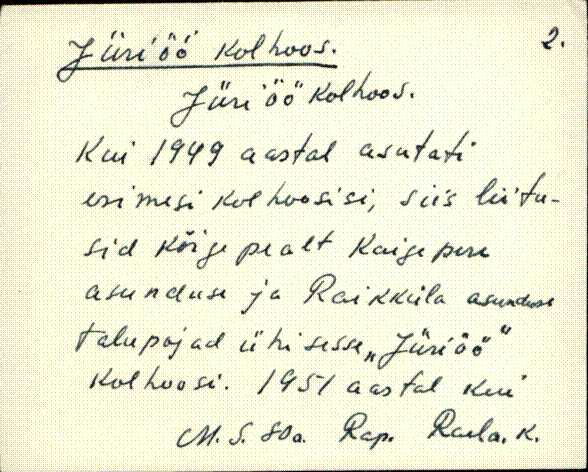 Jüriöö kolhoos. 2.
Jüriöö kolhoos.
Kui 1949 aastal asutati
esimesi kolhoosisi, siis liitu-
sid kõige pealt Kaigepere
asunduse ja Raikküla asunduse
talupojad ühisesse „Jüriöö"
kolhoosi. 1951 aastal kui
M. S. 80a. Rap. Raela. k.